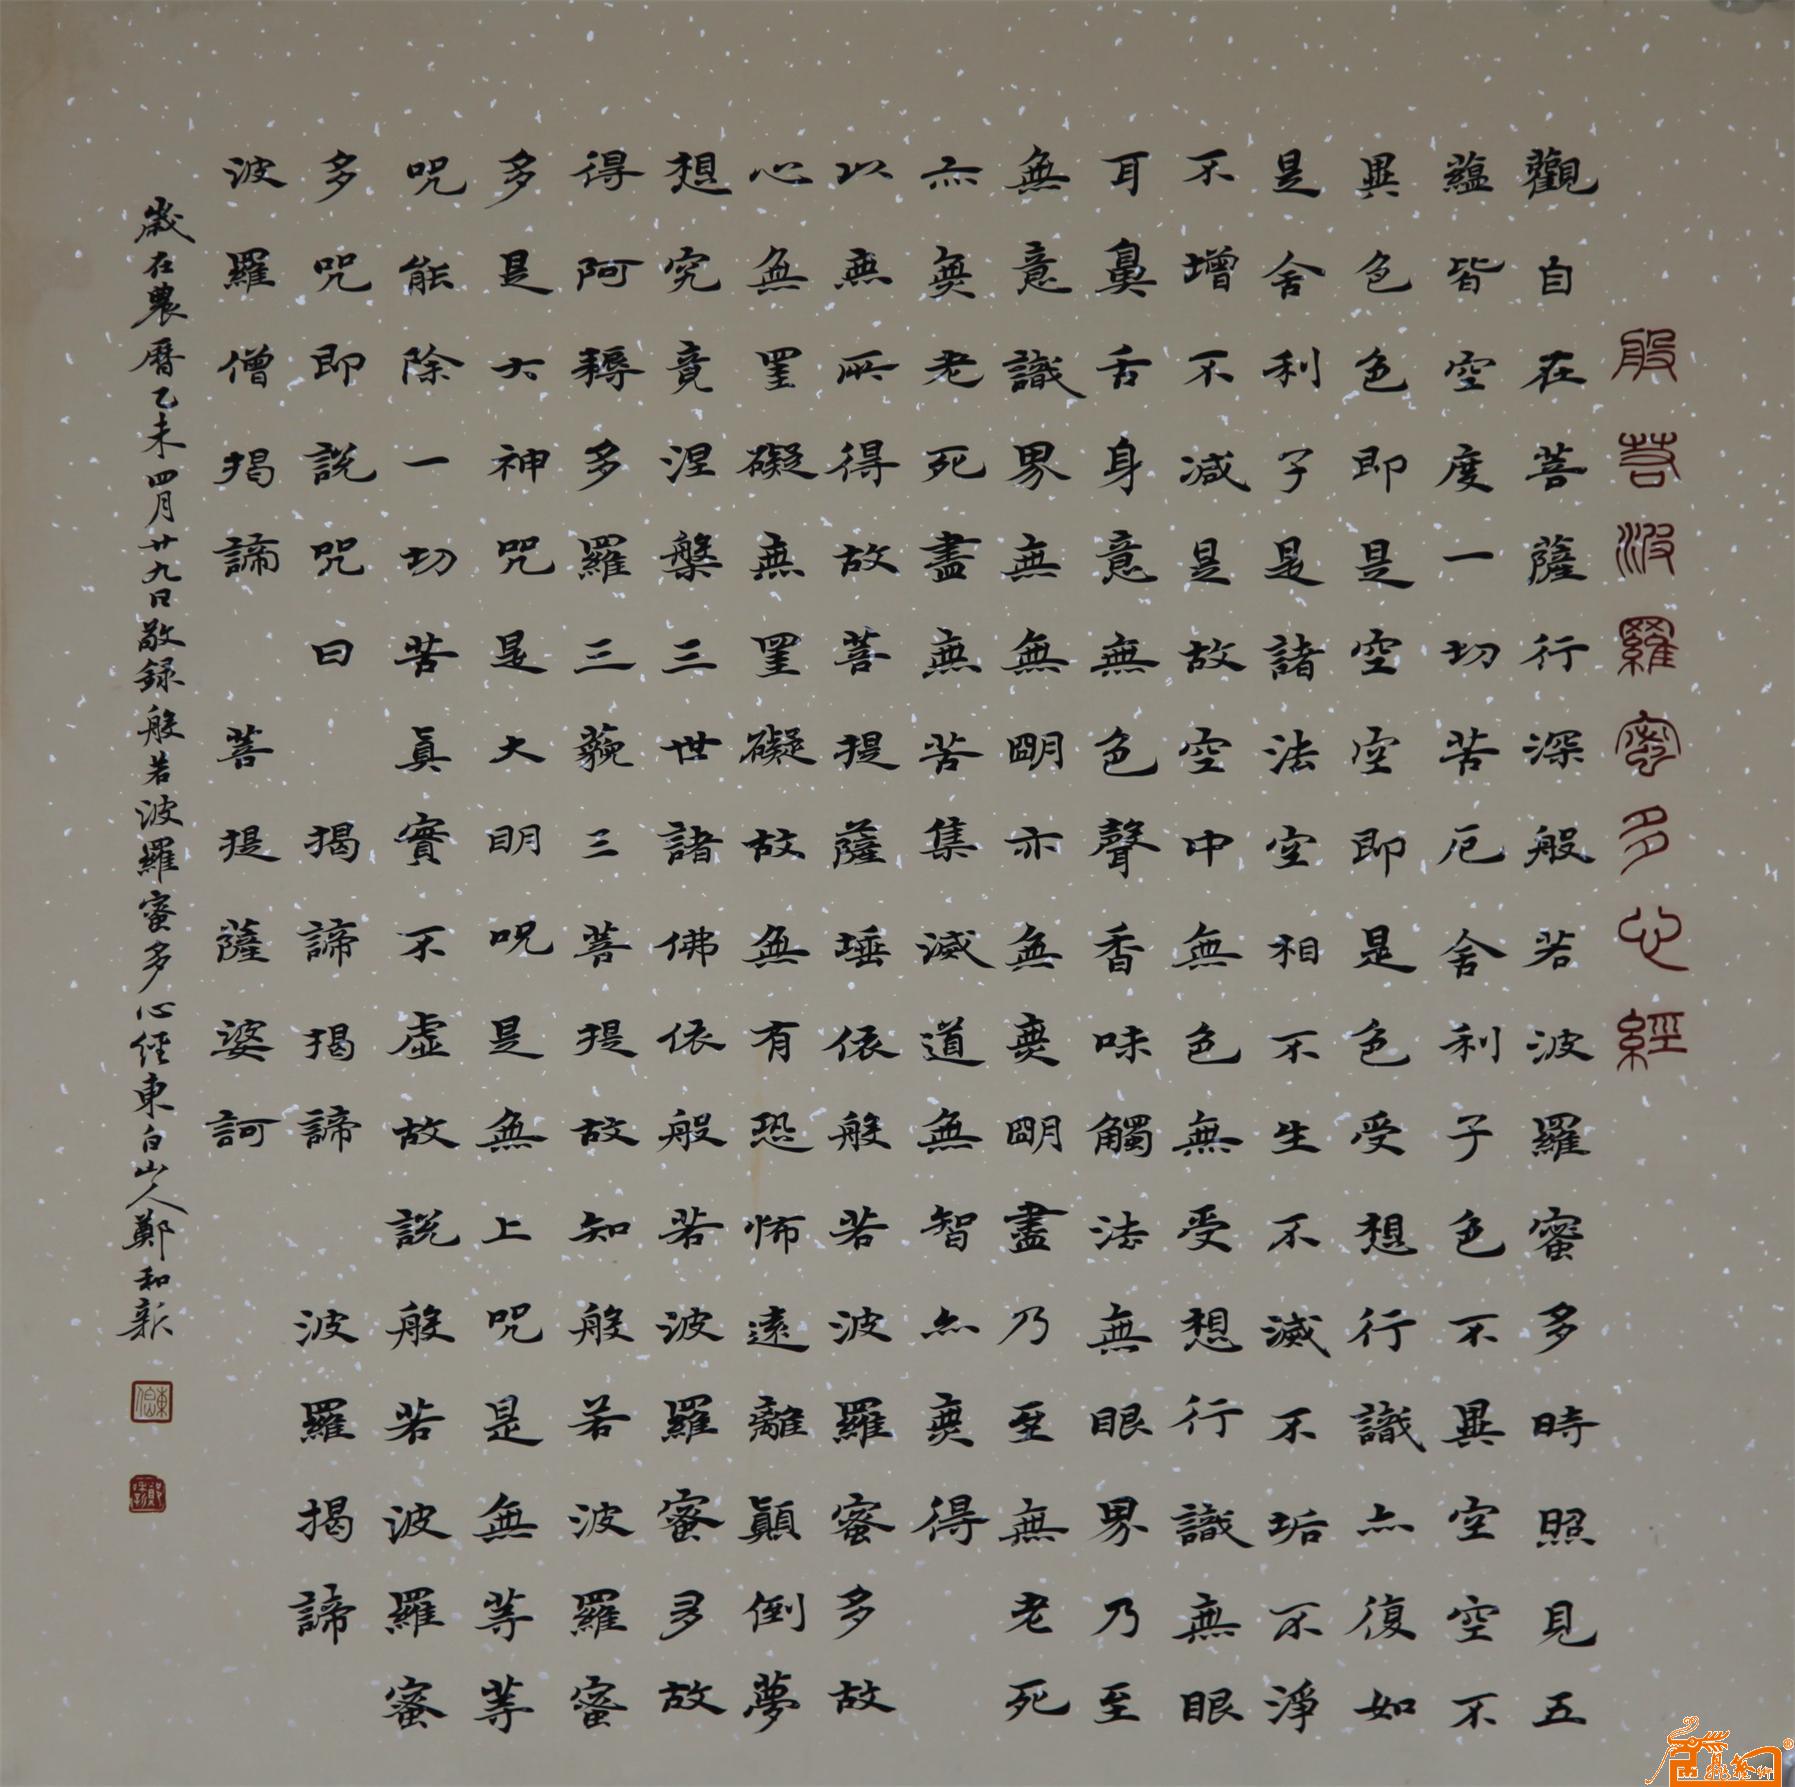 般若波羅蜜多心經
觀自在菩薩行深般若波羅蜜多時照見五
蘊皆空度一切苦厄舍利子色不異空空不
異色色即是空空即是色受想行識亦復如
是舍利子是諸法空相不生不滅不垢不淨
不增不減是故空中無色無受想行識無眼
耳鼻舌身意無色聲香味觸法無眼界乃至
無意識界無無明亦無無明盡乃至無老死
亦無老死盡無苦集滅道無智亦無得
以無所得故菩提薩埵依般若波羅蜜多故
心無罣礙無罣礙故無有恐怖遠離顛倒夢
想究竟涅槃三世諸佛依般若波羅蜜多故
得阿耨多羅三藐三菩提故知般若波羅蜜
多是大神咒是大明咒是無上咒是無等等
咒能除一切苦真實不虛故說般若波羅蜜
多咒即說咒曰 揭諦揭諦 波羅揭諦
波羅僧揭諦 菩提薩婆訶
歲在農曆乙未四月廿九日敬録般若波羅蜜多心経東白山人鄭和新